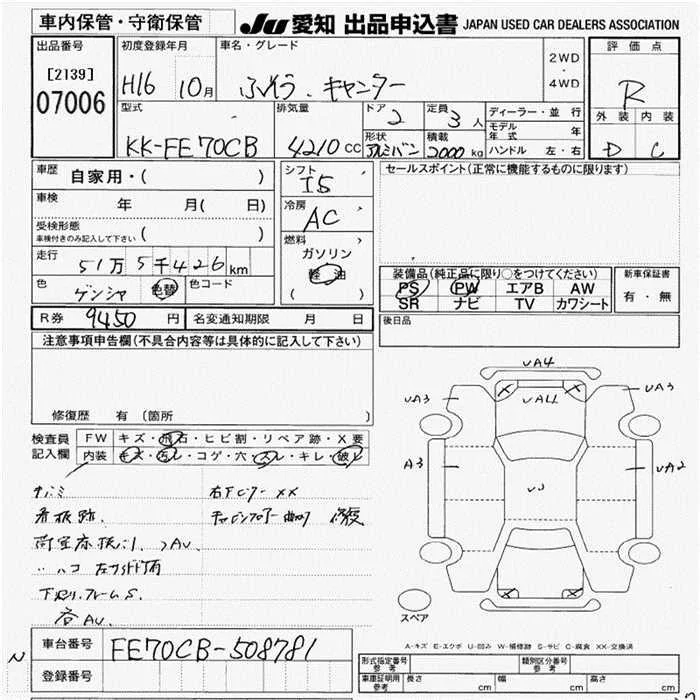 車内保管・守衛保管
JU 愛知 出品申込書 JAPAN USED CAR DEALERS ASSOCIATION
出品番号
[2139]
07006
初度登録年月
H16 10月
車名・グレード
ふそう・キャンター
2WD
・
4WD
評価点
R
外装 内装
D C
型式
KK-FE70CB
排気量
4210 CC
ドア
2
定員
3人
形状
アルミバン
積載
2000kg
ディーラー・並行
モデル年式 年
ハンドル 左・右
車歴
自家用・( )
車検
年 月( 日)
受検形態
車検付きのみ記入して下さい ( )
走行
51万5千426km
色
ゲンシャ 色替
色コード
シフト
I5
冷房
AC
燃料
ガソリン
軽油
( )
セールスポイント(正常に機能するものに限ります)
装備品(純正品に限り○をつけてください)
PS PW エアB AW
SR ナビ TV カワシート
新車保証書
有・無
後日品
R券 9450円 名変通知期限 月 日
注意事項申告欄(不具合内容等は具体的に記入して下さい)
修復歴 有 (箇所 )
検査員記入欄
FW キズ・飛石・ヒビ割・リペア跡・X要
内装 キズ・汚レ・コゲ・穴・スレ・キレ・破レ
サバミ
看板跡.
右下
XX
修復
AV.
ハコ
下廻りフレームS.
AV.
UA4
UA3
UA11
UA3
A3
UA2
UJ
スペア
N
車台番号 FE70CB-508781
登録番号
A-キズ E-エクボ U-凹み W-補修跡 S-サビ C-腐食 XX-交換済
形式指定番号参考
類別区分番号参考
車庫証明用参考 長さ cm 幅 cm 高さ cm